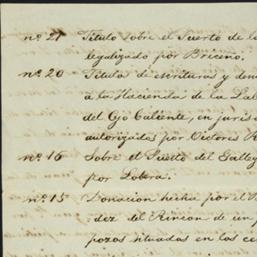 nº 21 Titulo sobre el Puerto de la
legalizado por Briceño.
nº 20 Titulos de escrituras y den
á la Hacienda de la Sal
del Ojo Caliente, en juris
autorizados por Victores R
nº 16 Sobre el Puerto del Galle
por Lobera.
nº 15 Donacion hecha por el
dez del Rincon de un
pozos situados en los ce